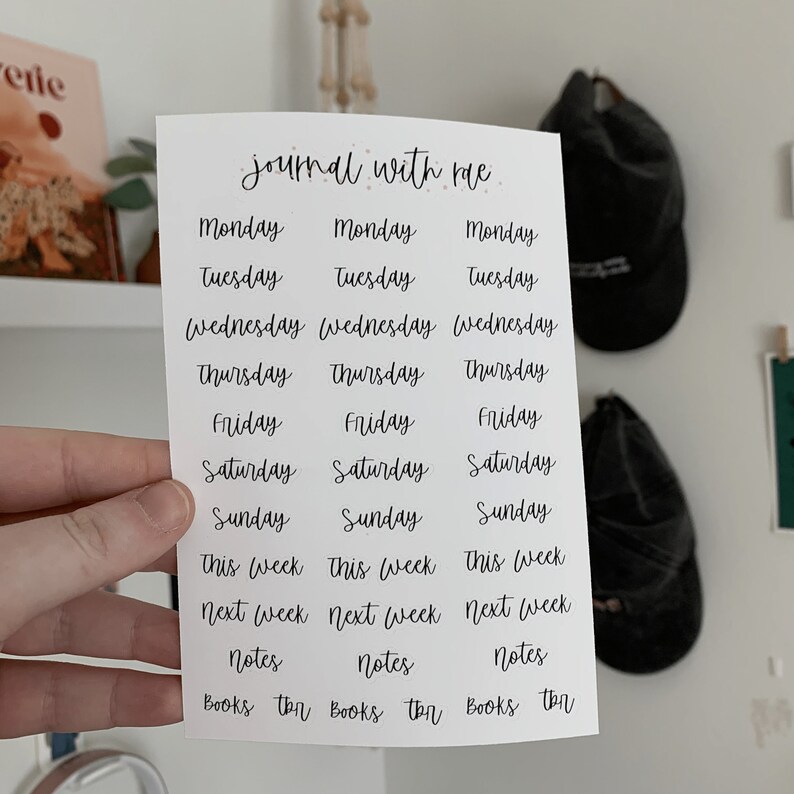 journal with rae
Monday Monday Monday
Tuesday Tuesday Tuesday
Wednesday Wednesday Wednesday
Thursday Thursday Thursday
Friday Friday Friday
Saturday Saturday Saturday
Sunday Sunday Sunday
This Week This Week This Week
Next Week Next Week Next Week
Notes Notes Notes
Books tbr Books tbr Books tbr